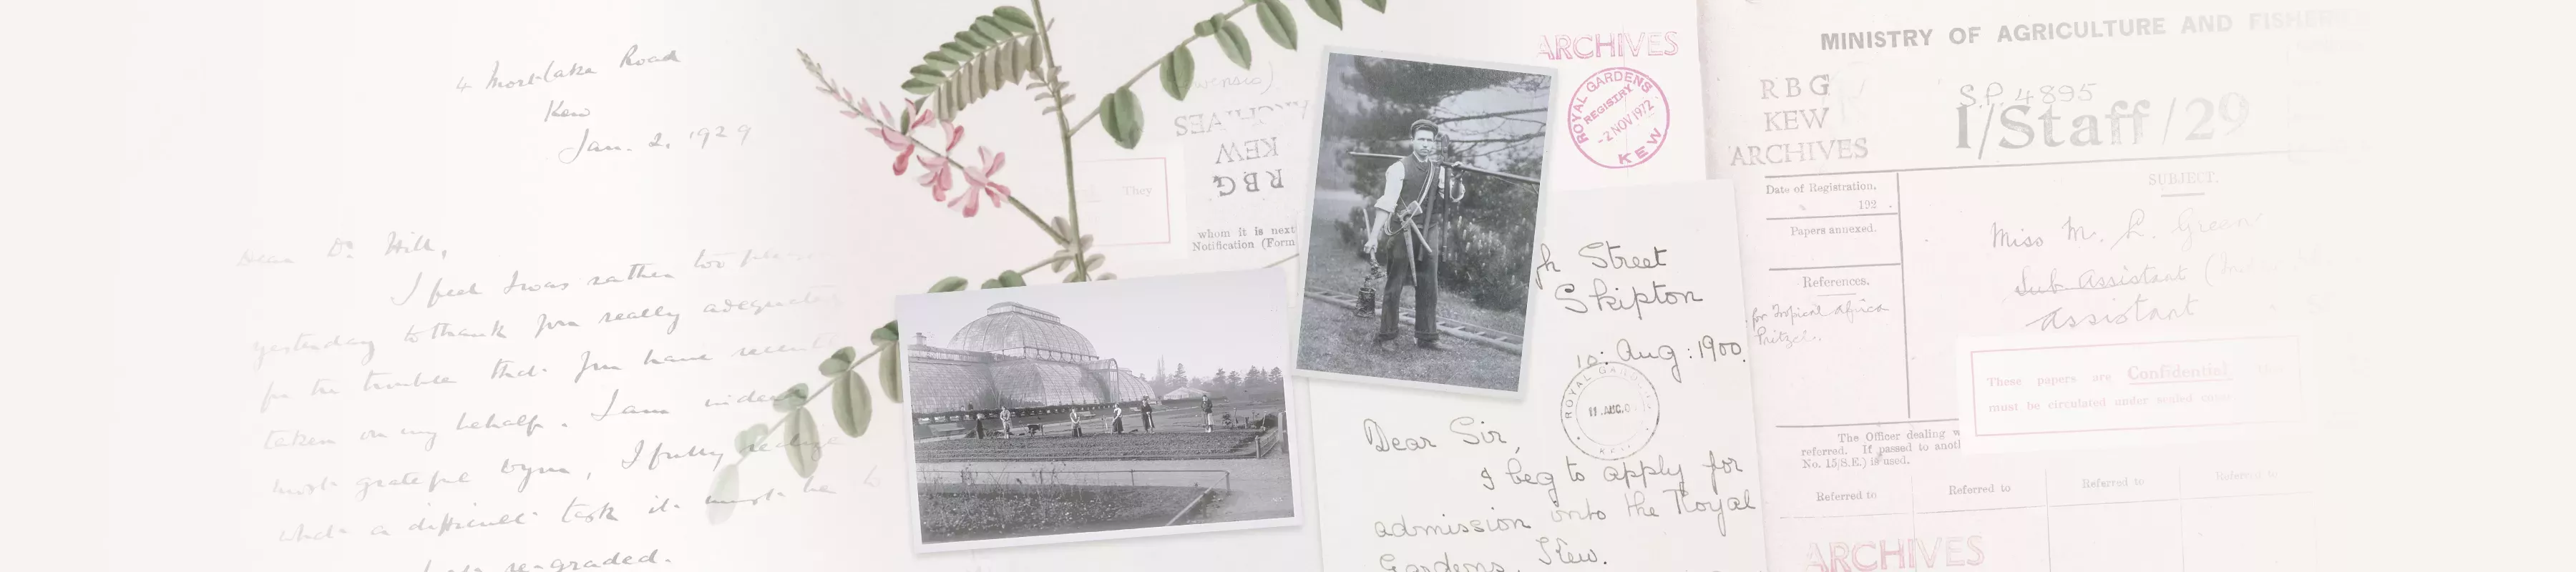 4 Mortlake Road
Kew
Jan. 2. 1929
Dear Dr. Hill,
I feel I was rather too
yesterday to thank you really adequately
for the trouble that you have recently
taken on my behalf. I am indeed
most grateful to you, I fully realize
what a difficult task it must be to
re-graded.
They
ARCHIVES
KEW
RBG
whom it is next
Notification (Form
ARCHIVES
ROYAL GARDENS
REGISTRY
-2 NOV 1972
KEW
Street
Skipton
10: Aug: 1900.
ROYAL GARDENS
11.AUG.0
KEW
Dear Sir,
I beg to apply for
admission into the Royal
Gardens, Kew.
MINISTRY OF AGRICULTURE AND FISHERIES
RBG
KEW
ARCHIVES
S.P. 4895
I/Staff/29
Date of Registration.
192 .
Papers annexed.
References.
for Tropical Africa
Pritzel.
SUBJECT.
Miss M. L. Green
Sub Assistant
Assistant
These papers are Confidential
must be circulated under sealed cover
The Officer dealing w
referred. If passed to anotl
No. 15/S.E.) is used.
Referred to
Referred to
Referred to
Referred to
ARCHIVES